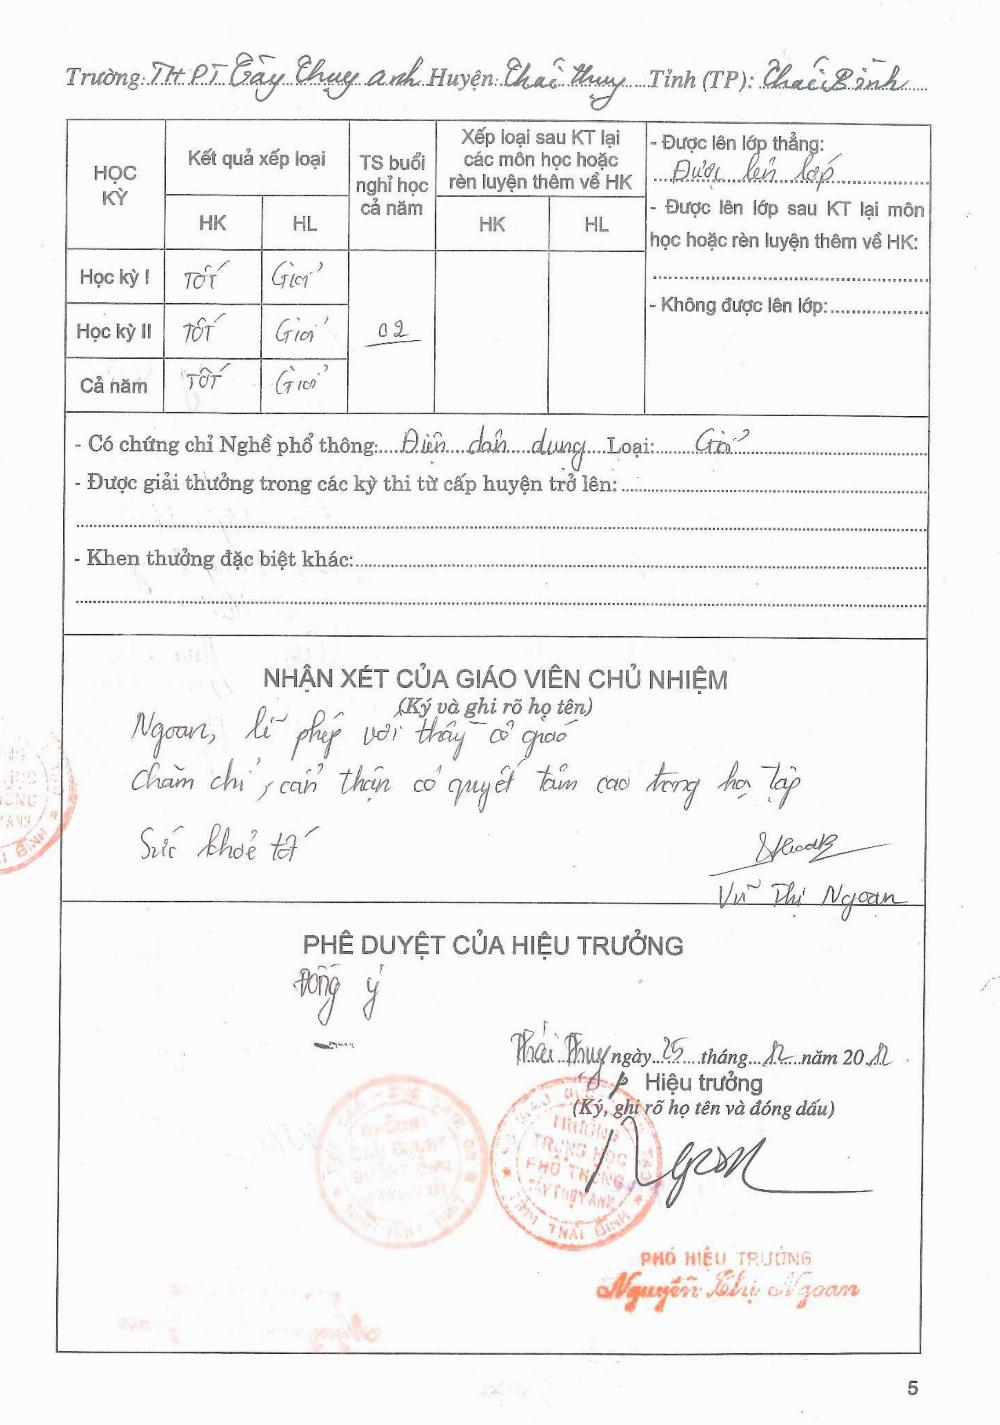 Trường: THPT Tây Thụy Anh Huyện: Thái Thụy Tỉnh (TP): Thái Bình
HỌC KỲ
Kết quả xếp loại
HK HL
TS buổi nghỉ học cả năm
Xếp loại sau KT lại các môn học hoặc rèn luyện thêm về HK
HK HL
- Được lên lớp thẳng:
Được lên lớp
- Được lên lớp sau KT lại môn
học hoặc rèn luyện thêm về HK:
- Không được lên lớp:
Học kỳ I Tốt Giỏi
Học kỳ II Tốt Giỏi 02
Cả năm Tốt Giỏi
- Có chứng chỉ Nghề phổ thông: Điện dân dụng Loại: Giỏi
- Được giải thưởng trong các kỳ thi từ cấp huyện trở lên:
- Khen thưởng đặc biệt khác:
NHẬN XÉT CỦA GIÁO VIÊN CHỦ NHIỆM
(Ký và ghi rõ họ tên)
Ngoan, lễ phép với thầy cô giáo
Chăm chỉ, cẩn thận có quyết tâm cao trong học tập
Sức khoẻ tốt
Vũ Thị Ngoan
PHÊ DUYỆT CỦA HIỆU TRƯỞNG
Đồng ý
Thái Thụy ngày 25 tháng 12 năm 2012
Hiệu trưởng
(Ký, ghi rõ họ tên và đóng dấu)
TRƯỜNG
TRUNG HỌC
PHỔ THÔNG
TÂY THỤY ANH
PHÓ HIỆU TRƯỞNG
Nguyễn Thị Ngoan
5